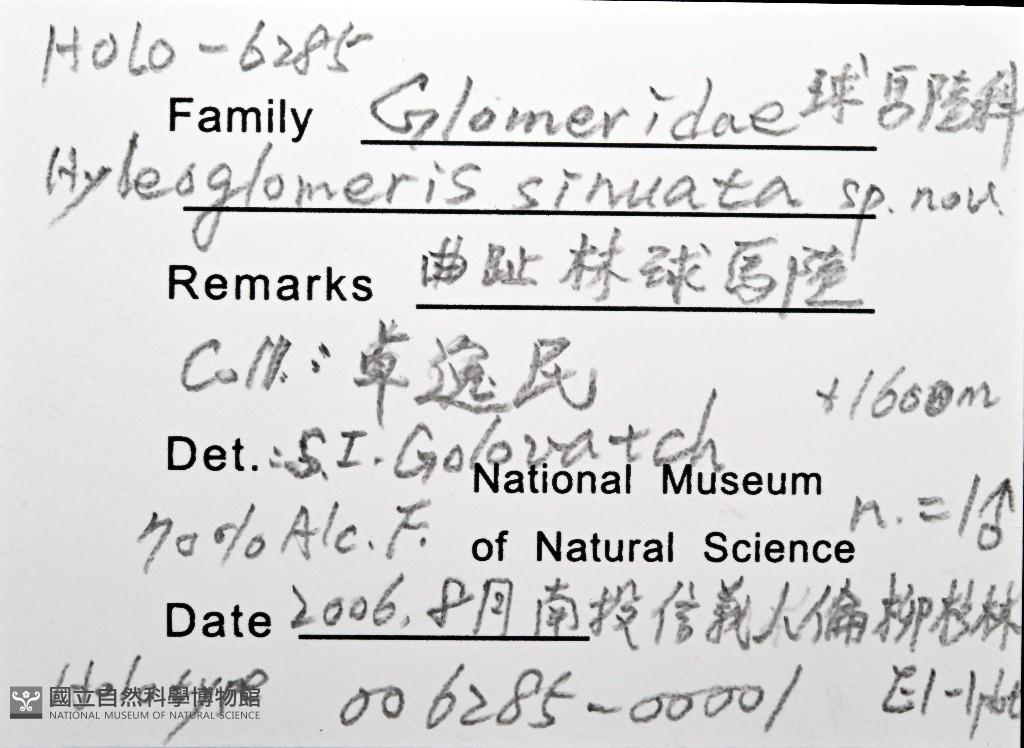 Holo-6285
Family Glomeridae 球馬陸科
Hyleoglomeris sinuata sp. nov.
Remarks 曲趾林球馬陸
Coll.: 卓逸民
+1600m
Det.: S.I. Golovatch
National Museum
70% Alc. F.
n.=1♂
of Natural Science
Date 2006.8月 南投信義人倫柳杉林
Holotype 006285-00001
國立自然科學博物館
NATIONAL MUSEUM OF NATURAL SCIENCE